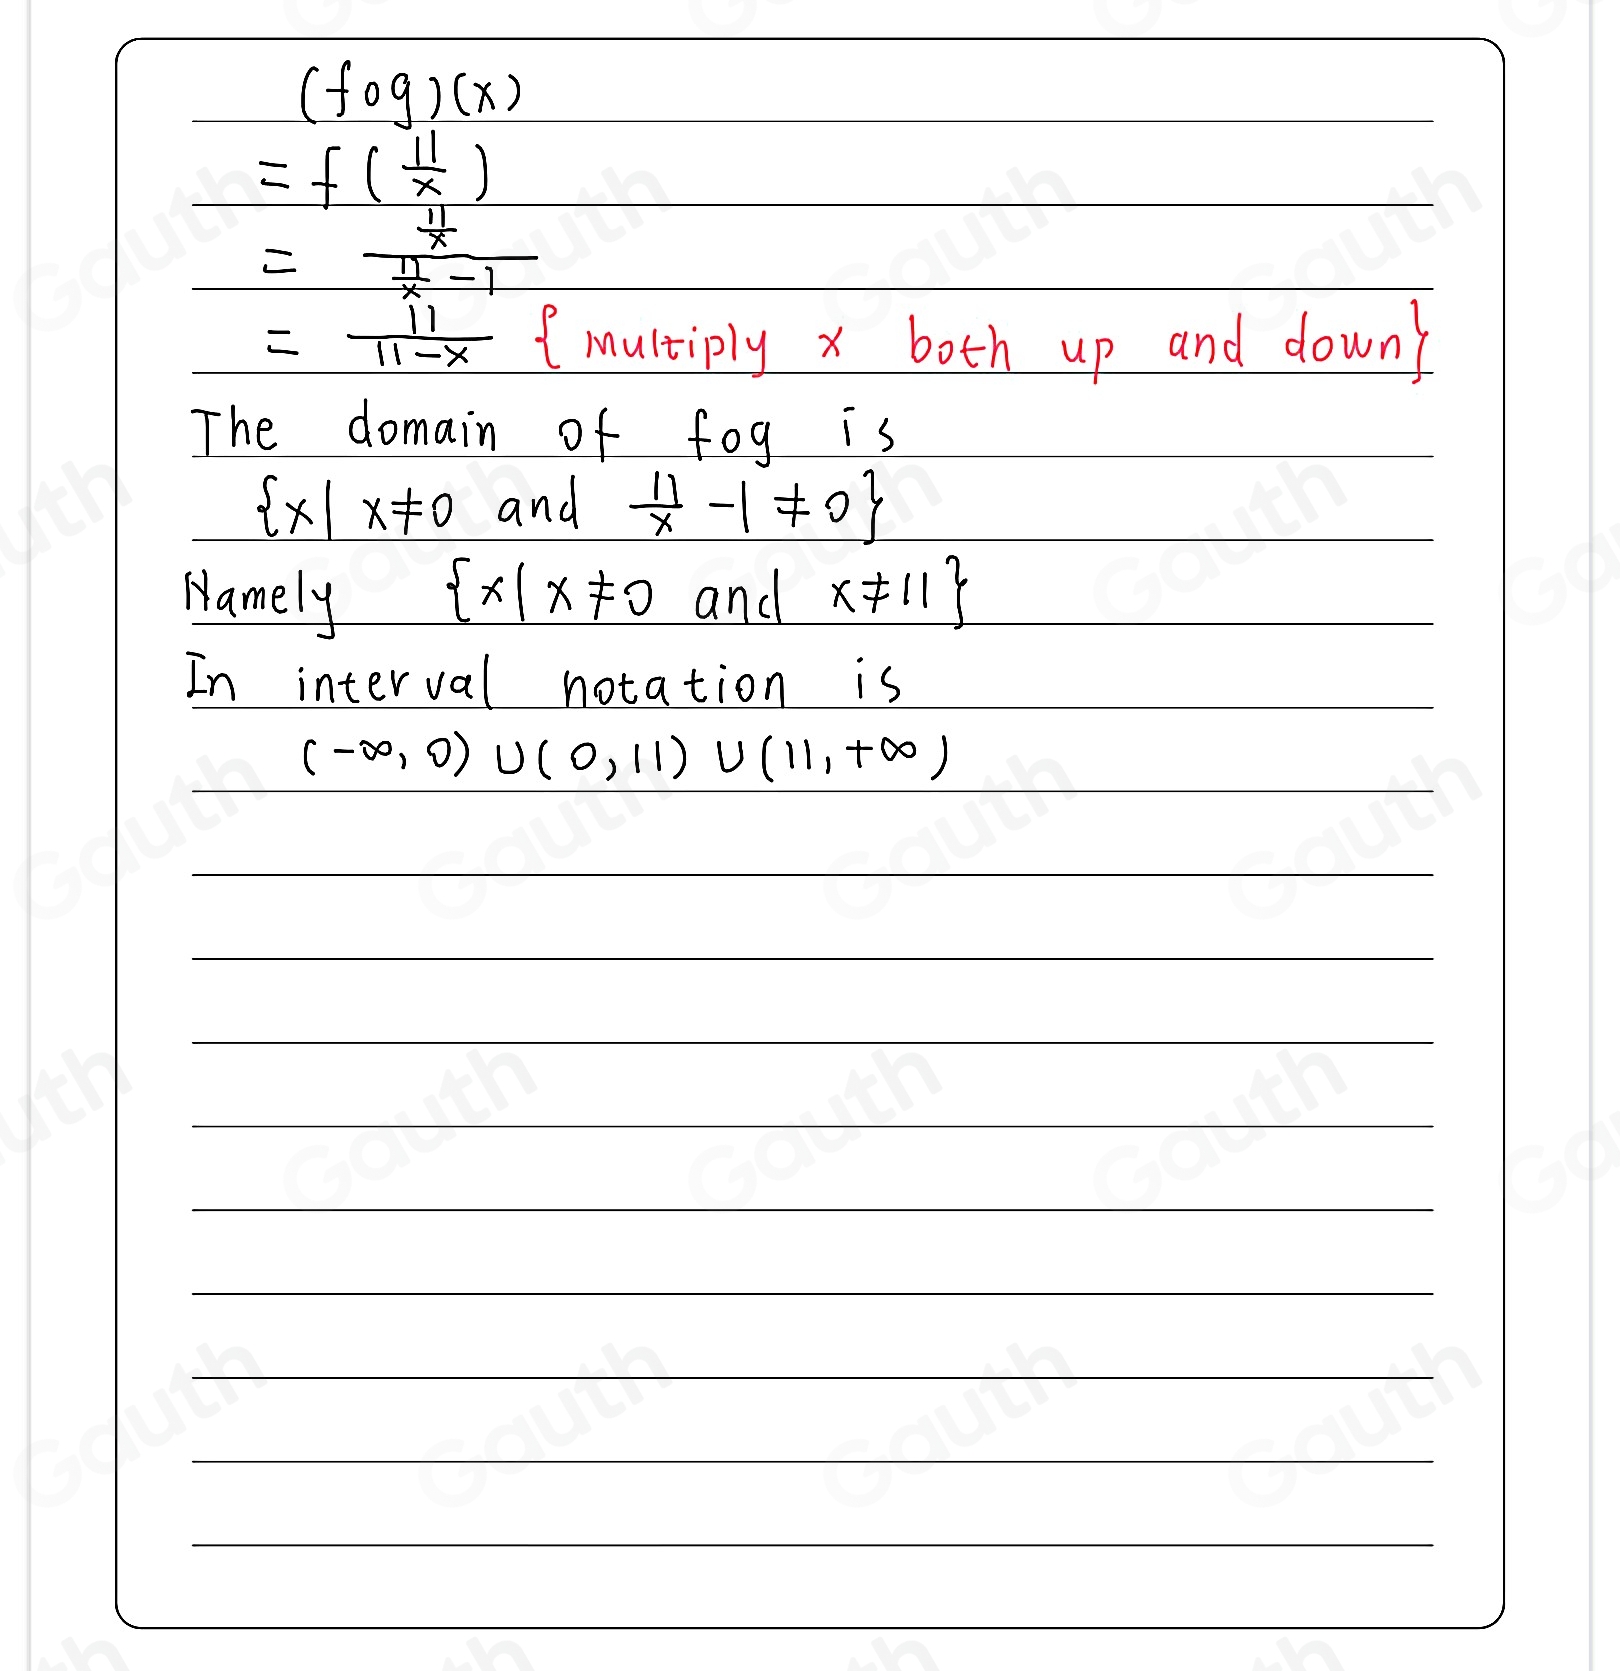 (fog)(x)
= f(11/x)
= (11/x)/(11/x - 1)
= 11/(11-x) {multiply x both up and down}
The domain of fog is
{x| x≠0 and 11/x -1 ≠0}
Namely {x| x≠0 and x≠11}
In interval notation is
(-∞, 0) ∪ (0, 11) ∪ (11, +∞)